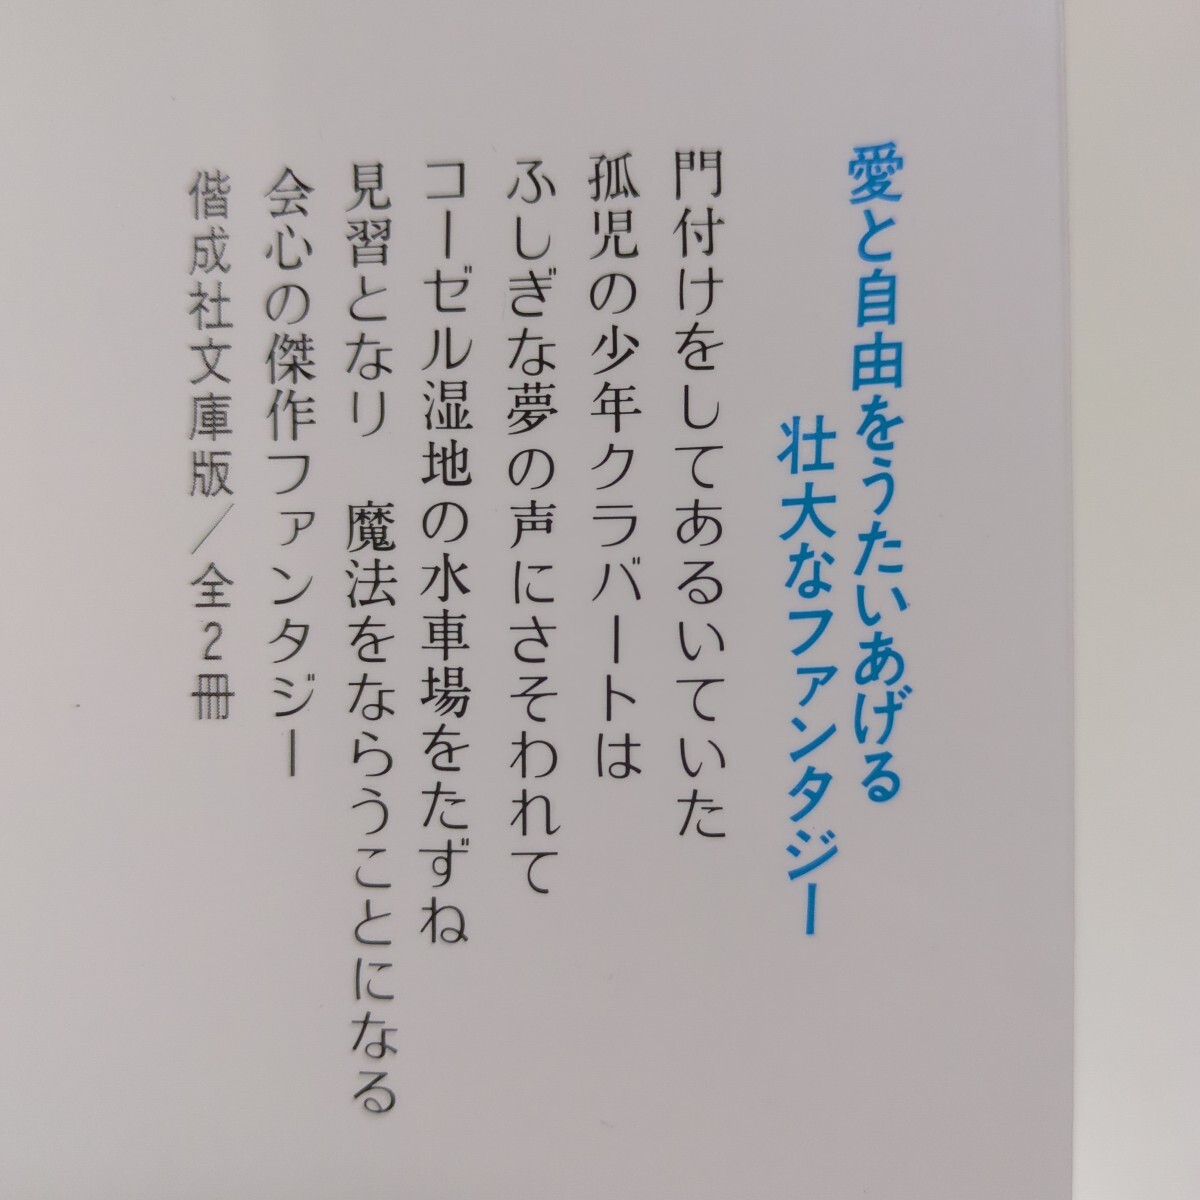 愛と自由をうたいあげる
壮大なファンタジー
門付けをしてあるいていた
孤児の少年クラバートは
ふしぎな夢の声にさそわれて
コーゼル湿地の水車場をたずね
見習となり　魔法をならうことになる
会心の傑作ファンタジー
偕成社文庫版／全2冊